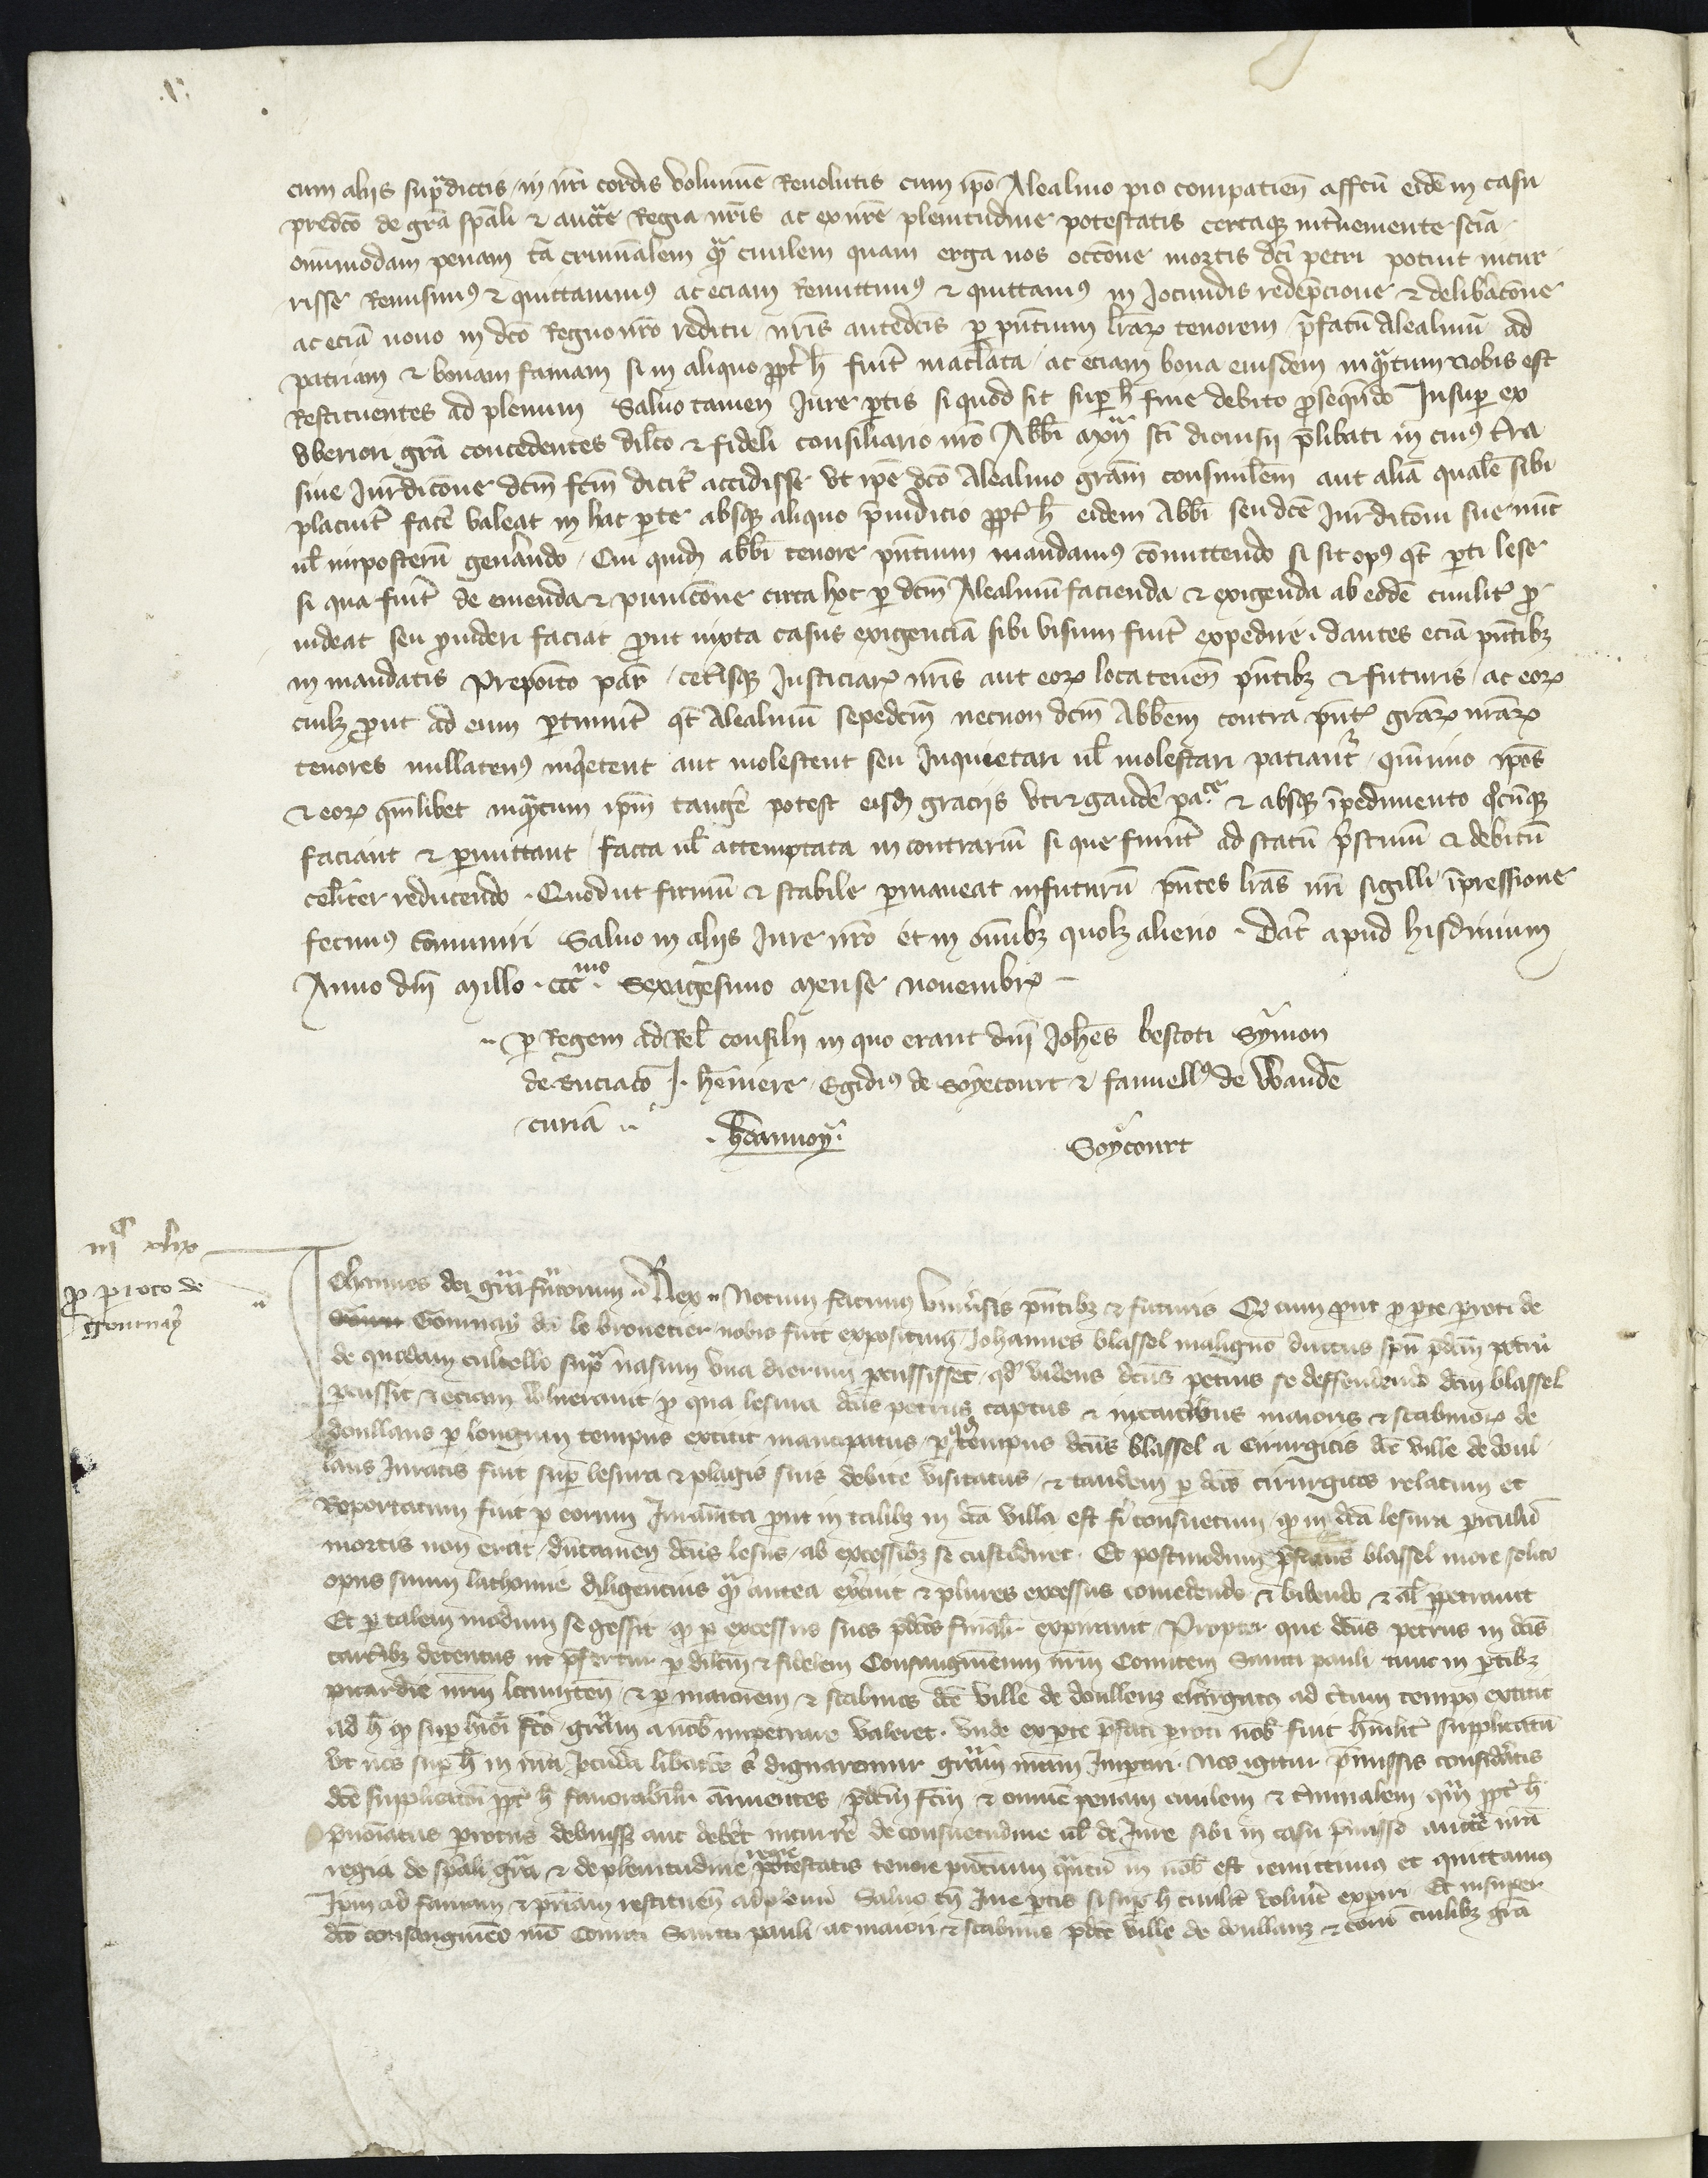 cum alijs supradictis in nri cordis volumine Revolutis cum ipo Alealmo pio compatien affcu eidem in casu
predco de gra spali & aucte Regia nris ac ex nre plenitudine potestatis certaque interveniente scia
omnimodam penam ta criminalem qm civilem quam erga nos occone mortis dci petri potuit incur
risse Remisimus & quittavimus ac eciam Remittimus & quittamus in Jocundis redempcione & delibacone
ac ecia novo in dco Regno nro reditu nris antedcis per pntium lrarum tenorem prefatu Alealmu ad
patriam & bonam famam si in aliquo propt h fuit maclata ac eciam bona eiusdem inquantum nobis est
Restituentes ad plenum Salvo tamen Jure partis si quod sit super h fine debito prosequendo Insuper ex
Uberiori gra concedentes dilco & fideli consiliario nro Abbi mon sti dionisii prelibati in cuius terra
sive Jurdicone dcm fcm dicit accidisse ut ipe dco Alealmo gram consimilem aut alia quale sibi
placuit face valeat in hac parte absque aliquo preiudicio propt h eidem Abbi seu dce Jurditoni sue nunc
vel imposteru generando Cui quidem abbi tenore pntium mandamus comittendo si sit opus qt parti lese
si qua fuit de emenda & punicone circa hoc per dcm Alealmu facienda & exigenda ab eode civilit pro
videat seu provideri faciat prout iuxta casus exigencia sibi visum fuit expedire dantes ecia pntibz
in mandatis Preposito par ceterisque Justiciar nris aut eorum locatenen pntibz & futuris ac eorum
cuilz prout ad eum pertinuit qt Alealmu sepedcm necnon dcm Abbem contra pnt grarum nrarum
tenores nullatenus inquietent aut molestent seu Inquietari vel molestari patiant quinimo ipos
& eorum quemlibet inquantum ipm tange potest eisdem graciis uti & gaude pace & absque impedimento quocumque
faciant & permittant facta vel attemptata in contrariu si que fuerint ad statu pristinu & debitu
celeriter reducendo Quod ut firmu & stabile permaneat in futuru pntes lras nri sigilli impressione
fecimus comuniri Salvo in alijs Jure nro et in omnibz quolz alieno Dat apud hisdinium
Anno dni millo ccc mo Sexagesimo Mense novembr
per Regem ad Rel consilij in quo erant dni Johes bescoti Symon
de Buciaco J. heniere Egidius de Soyecourt & fauvellus de Wande
curia
henmoy Soycourt
iiic xlix
pro peroto de
Gournay
Johannes dei gra francorum Rex Notum facimus Universis pntibz & futuris Qd cum prout pro parte peroti de
Gournay dci le brouetier nobis fuit expositum Johannes blassel maligno ductus spu pdcm petru
de quodam cultello supra nasum una dierum percussisset qd videns dcus petrus se deffendendo dcm blassel
percussit & eciam vulneravit pro qua lesura dcus petrus captus & in carceribus maioris & scabinor de
doullans per longum tempus extitit mancipatus per qd tempus dcus blassel a cirurgicis dce ville de doul
lans Juratis fuit super lesura & plagis suis debite visitatus & tandem per dcos cirurgicos relatum et
Reportatum fuit per eorum Juramenta prout in talibz in dca villa est fi consuetum qd in dca lesura periculu
mortis non erat dumtamen dcus lesus ab excessibz se custodiret Et postmodum prefatus blassel more solito
opus suum lathomie diligencius qm antea exercuit & plures excessus comedendo & bibendo & al perpetravit
Et per talem modum se gessit qd per excessus suos pdcos finalr expiravit Propter que dcus petrus in dcis
carcibz detentus ut prefertur per dilcm & fidelem Consanguineum nrm Comitem Sancti pauli tunc in partibz
picardie nrm locumten & per maiorem & scabinos dce ville de doullenz elargatus ad certum tempus extitit
ad h qd super hmoi fco gram a nob impetrare valeret Unde ex parte prefati peroti nob fuit humilit supplicatu
Ut nos super h in nra Jocunda libacoe s dignaremur gram nram Imperari Nos igitur premissis consideratis
dce supplicaton propt h favorabilr annuentes pdcm fcm & omne penam civilem & criminalem qm propt h
prenoiatus perotus debuisse aut debet incurre de consuetudine vel de Jure sibi in casu premisso aucte nra
regia de spali gra & de plenitudine regie potestatis tenore pncium quantu in nob est remittimus et quittamus
Ipm ad famam & priam restituen ad plenu Salvo tn Jure partis si super h civilit voluit experiri Et insuper
dco consanguineo nro Comiti Sancti pauli ac maiori & scabinis pdce ville de doullanz & eorum cuilibz gra